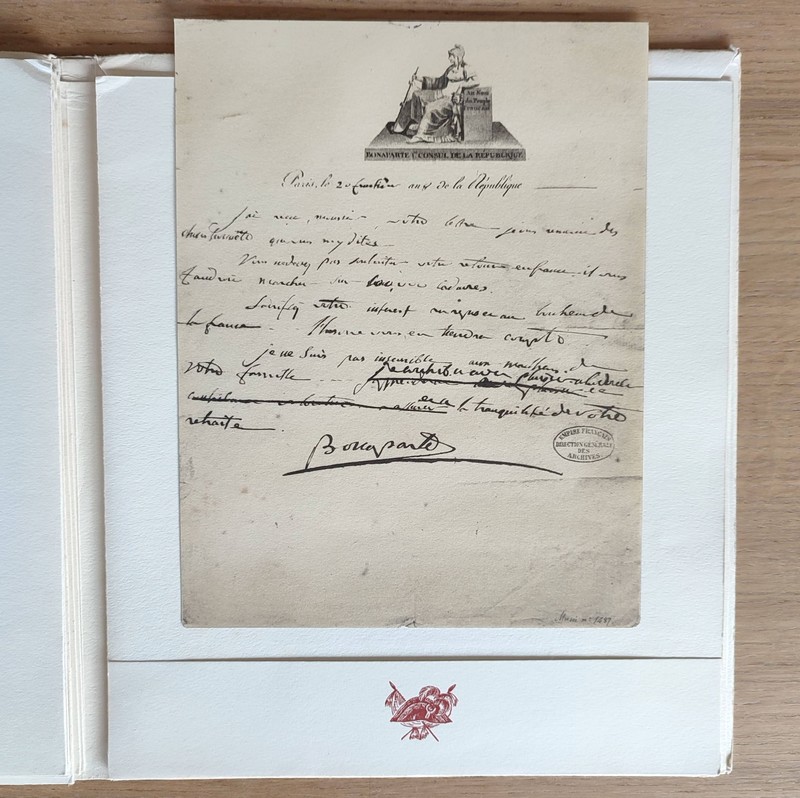 Au Nom
du Peuple
Français
BONAPARTE 1er CONSUL DE LA REPUBLIQUE
Paris, le 20 fructidor an 8 de la République
j'ai reçu, monsieur votre lettre je vous remercie des
choses que vous my dites
Vous ne devez pas souhaiter votre retour en france il vous
faudroit marcher sur cadavres
Sacrifiez votre interest au repos et au bonheur de
la france L'histoire vous en tiendra compte
je ne suis pas insensible aux malheurs de
votre famille je
a la tranquilité de votre
retraite
Bonaparte
EMPIRE FRANÇAIS
DIRECTION GENERALE
DES
ARCHIVES